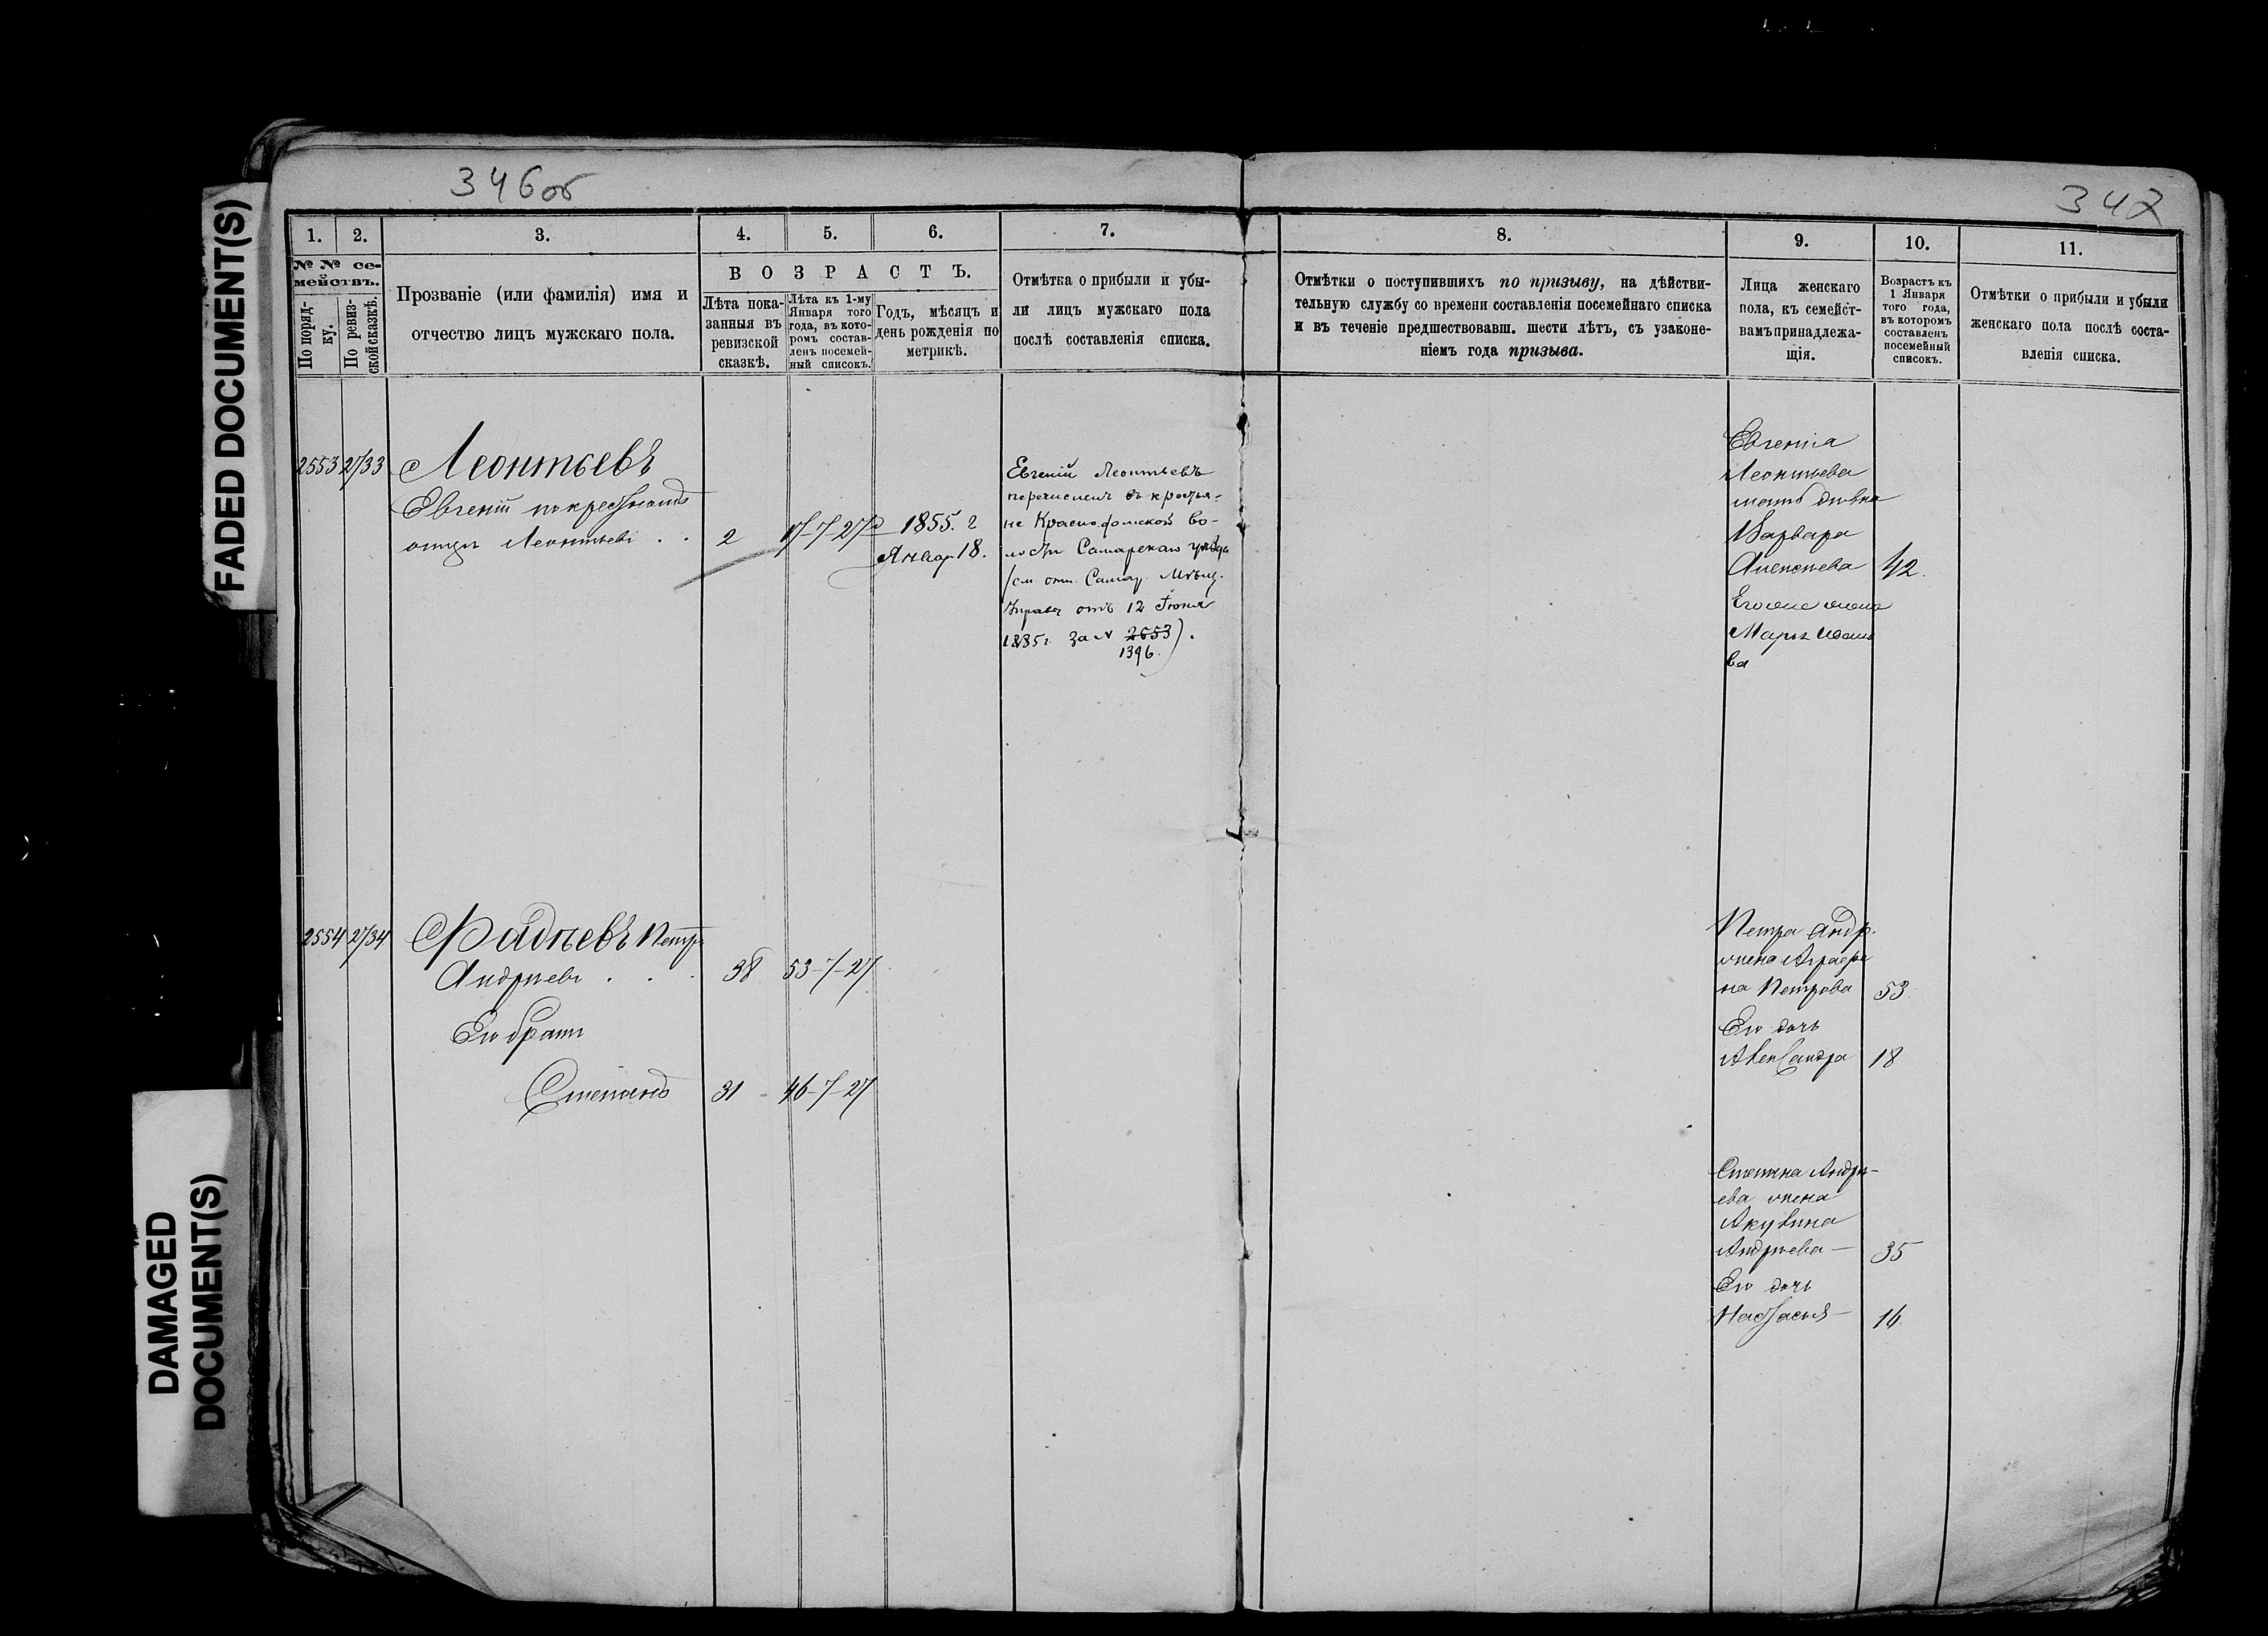 346об
347
FADED DOCUMENT(S)
DAMAGED
DOCUMENT(S)
1.
2.
3.
4.
5.
6.
7.
8.
9.
10.
11.
№ № се-
мействъ.
По поряд-
ку.
По ревиз-
ской сказкѣ.
Прозваніе (или фамилія) имя и
отчество лицъ мужскаго пола.
ВОЗРАСТЪ.
Лѣта пока-
занныя въ
ревизской
сказкѣ.
Лѣта къ 1-му
Января того
года, въ кото-
ромъ состав-
ленъ посемей-
ный списокъ.
Годъ, мѣсяцъ и
день рожденія по
метрикѣ.
Отмѣтка о прибыли и убы-
ли лицъ мужскаго пола
послѣ составленія списка.
Отмѣтки о поступившихъ по призыву, на дѣйстви-
тельную службу со времени составленія посемейнаго списка
и въ теченіе предшествовавш. шести лѣтъ, съ узаконе-
ніемъ года призыва.
Лица женскаго
пола, къ семейст-
вамъ принадлежа-
щія.
Возрастъ къ
1 Января
того года,
въ которомъ
составленъ
посемейный
списокъ.
Отмѣтки о прибыли и убыли
женскаго пола послѣ соста-
вленія списка.
2553
27/33
Леонтьевъ
Евгеній по крестному
отцу Леонтьевъ . .
2
17-7-27
1855. г
Январ 18.
Евгеній Леонтьевъ
перечисленъ въ крестья-
не
во-
лости Самарскаго уѣзда
(см. отн. Самар. Мѣщ.
Управы отъ 12 Іюня
1885г. за № 2653).
1396.
Евгенія
Леонтьева
мать дѣвка
Варвара
Алексѣева
42.
Его же жена
Марья Ивано
ва
2554
27/34
Фадѣевъ Петръ
Андреевъ . . .
38
53-7-27
Его братъ
Степанъ
31
46-7-27
Петра Андр.
жена Аграфе
на Петрова
53.
Его дочь
Александра
18
Степана Андре-
ева жена
Акулина
Андреева —
35
Его дочь
Настасья —
16.